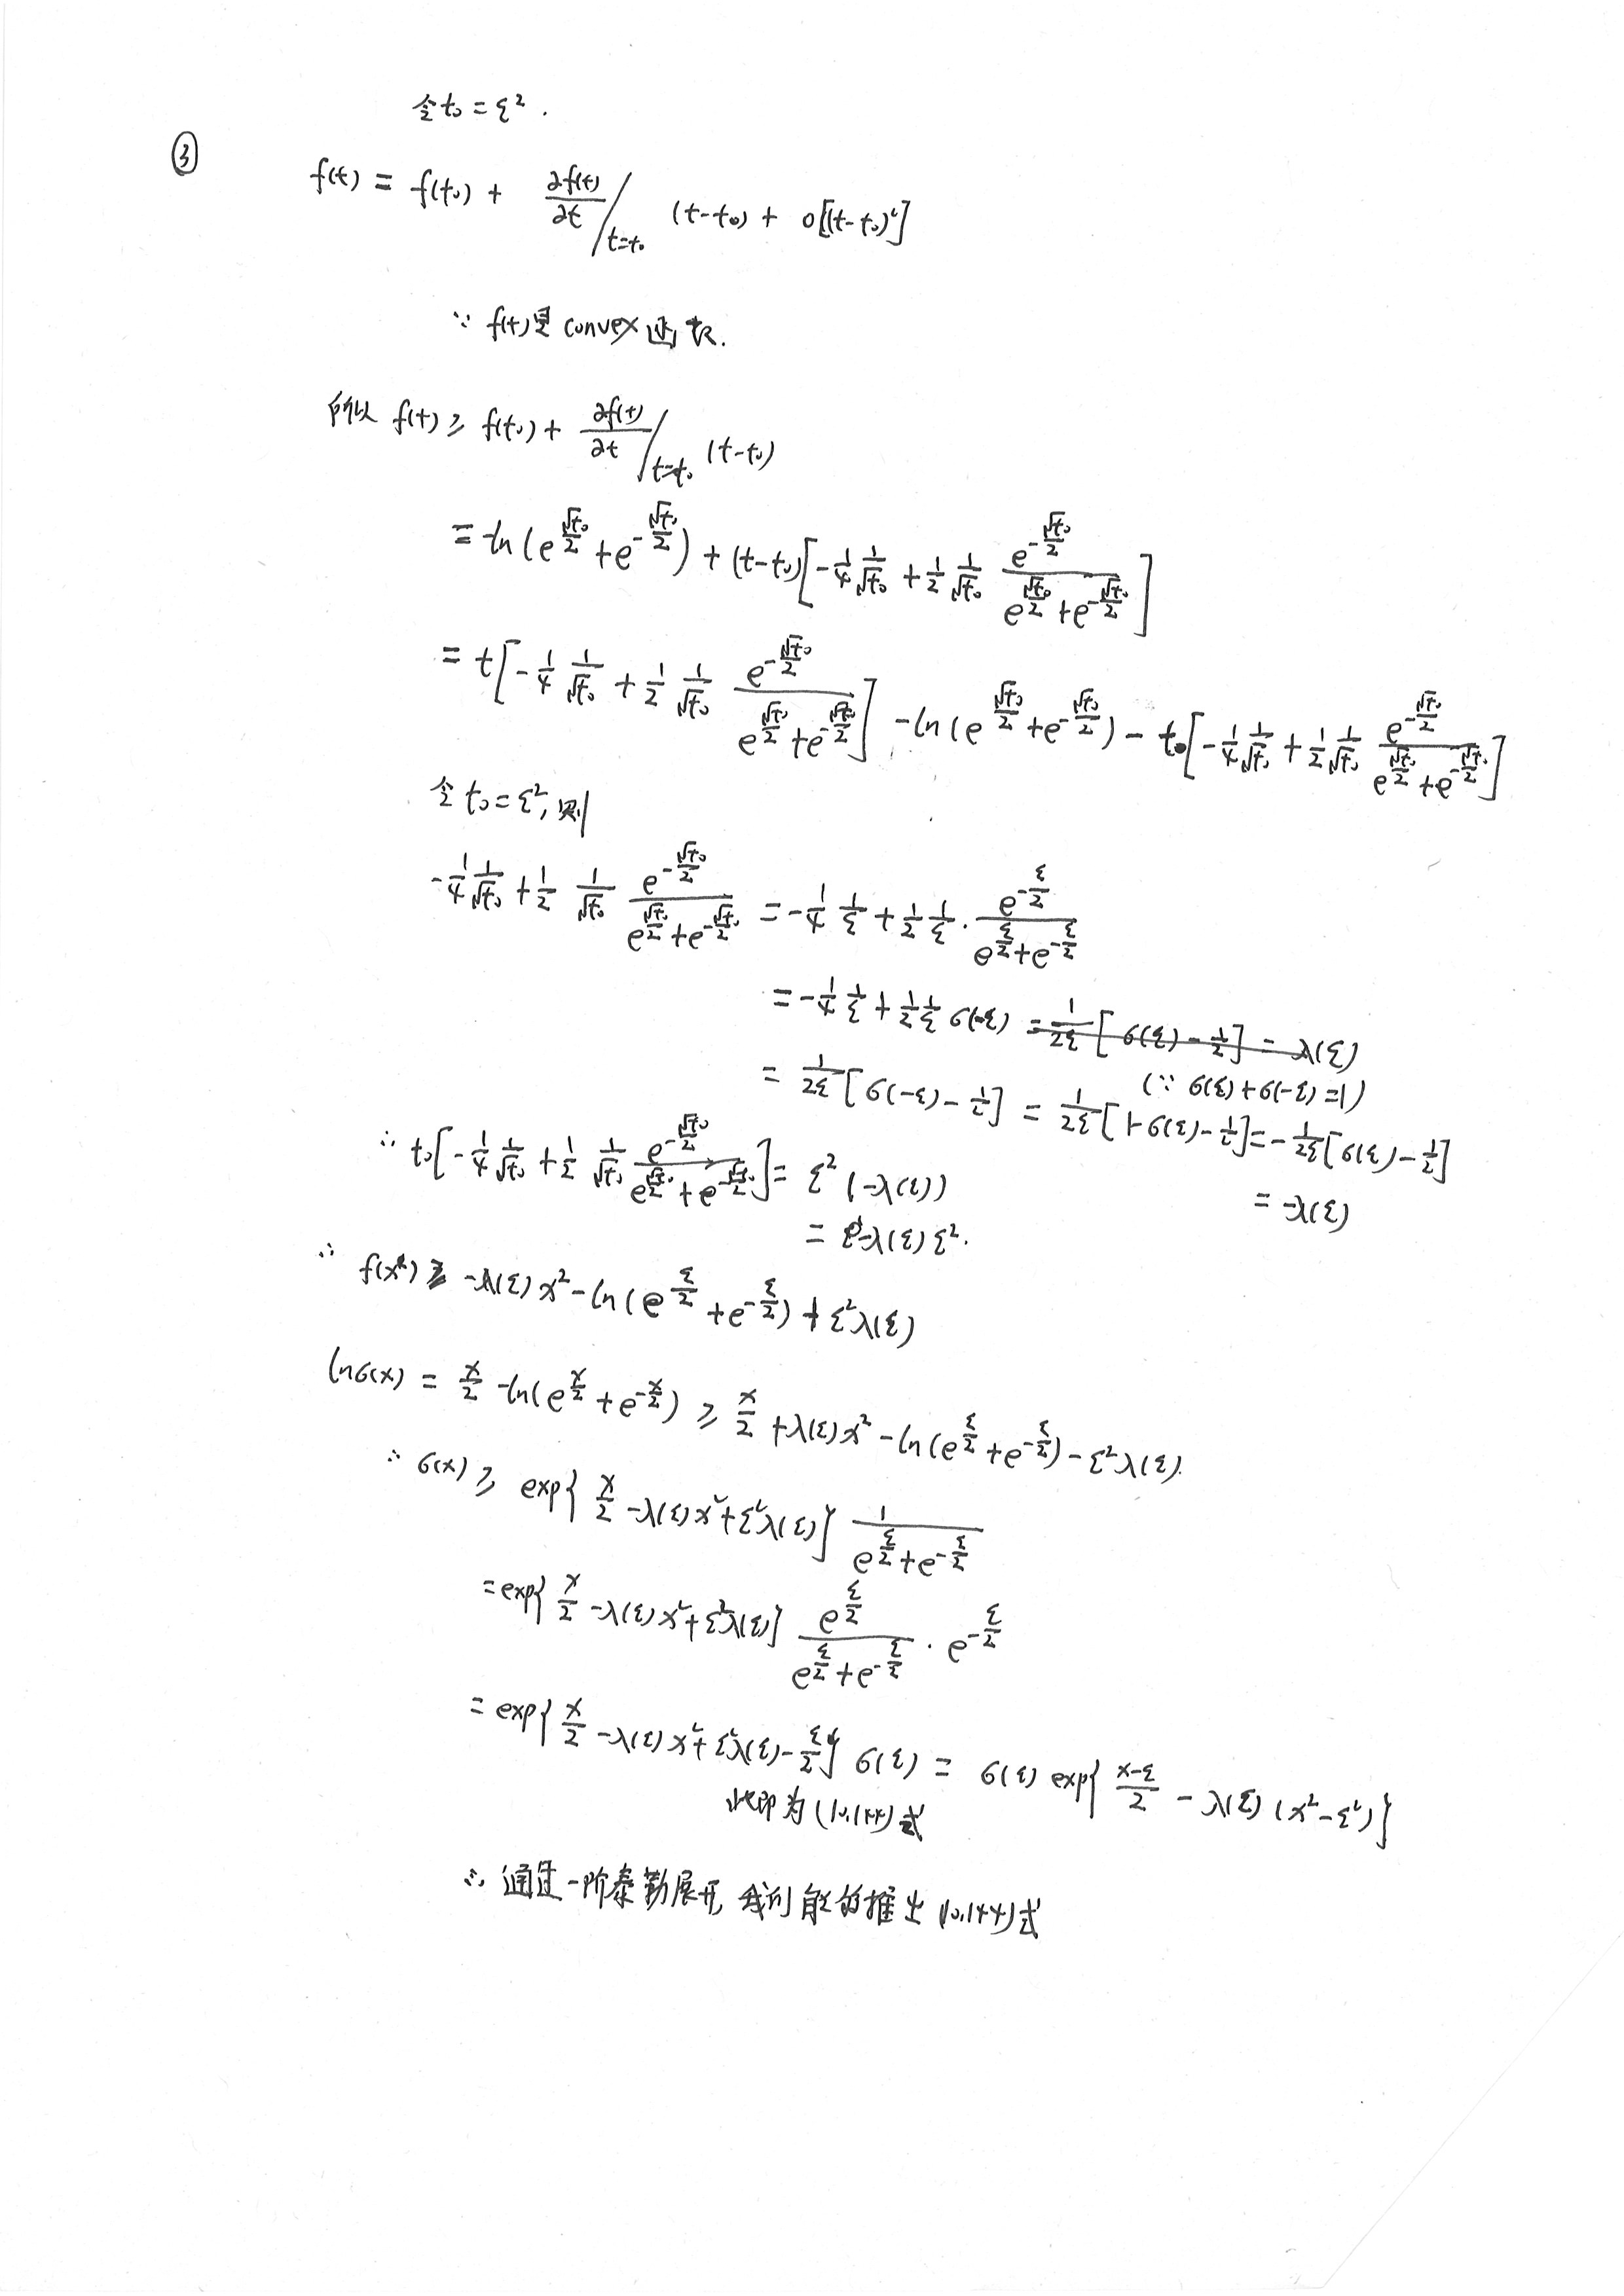 令 t₀ = ξ² .
③
f(t) = f(t₀) + ∂f(t)/∂t /t=t₀ (t-t₀) + o[(t-t₀)²]
∵ f(t)是 convex 函数.
所以 f(t) ≥ f(t₀) + ∂f(t)/∂t /t=t₀ (t-t₀)
= -ln(e^{√t₀/2} + e^{-√t₀/2}) + (t-t₀)[-1/4 1/√t₀ + 1/2 1/√t₀ e^{-√t₀/2}/(e^{√t₀/2} + e^{-√t₀/2})]
= t[-1/4 1/√t₀ + 1/2 1/√t₀ e^{-√t₀/2}/(e^{√t₀/2} + e^{-√t₀/2})] - ln(e^{√t₀/2} + e^{-√t₀/2}) - t₀[-1/4 1/√t₀ + 1/2 1/√t₀ e^{-√t₀/2}/(e^{√t₀/2} + e^{-√t₀/2})]
令 t₀ = ξ², 则
-1/4 1/√t₀ + 1/2 1/√t₀ e^{-√t₀/2}/(e^{√t₀/2} + e^{-√t₀/2}) = -1/4 1/ξ + 1/2 1/ξ · e^{-ξ/2}/(e^{ξ/2} + e^{-ξ/2})
= -1/4 1/ξ + 1/2 1/ξ σ(-ξ) = 1/2ξ [σ(ξ) - 1/2] = λ(ξ)
(∵ σ(ξ) + σ(-ξ) = 1)
= 1/2ξ [σ(-ξ) - 1/2] = 1/2ξ [1-σ(ξ) - 1/2] = -1/2ξ [σ(ξ) - 1/2]
= -λ(ξ)
∴ t₀[-1/4 1/√t₀ + 1/2 1/√t₀ e^{-√t₀/2}/(e^{√t₀/2} + e^{-√t₀/2})] = ξ² (-λ(ξ))
= -λ(ξ) ξ².
∴ f(x²) ≥ -λ(ξ) x² - ln(e^{ξ/2} + e^{-ξ/2}) + ξ²λ(ξ)
lnσ(x) = x/2 - ln(e^{x/2} + e^{-x/2}) ≥ x/2 + λ(ξ) x² - ln(e^{ξ/2} + e^{-ξ/2}) - ξ²λ(ξ).
∴ σ(x) ≥ exp{ x/2 - λ(ξ) x² + ξ²λ(ξ) } 1/(e^{ξ/2} + e^{-ξ/2})
= exp{ x/2 - λ(ξ) x² + ξ²λ(ξ) } e^{ξ/2}/(e^{ξ/2} + e^{-ξ/2}) · e^{-ξ/2}
= exp{ x/2 - λ(ξ) x² + ξ²λ(ξ) - ξ/2 } σ(ξ) = σ(ξ) exp{ (x-ξ)/2 - λ(ξ) (x² - ξ²) }
此即为 (10.144) 式
∴ 通过一阶泰勒展开, 我们能够推出 (10.144) 式